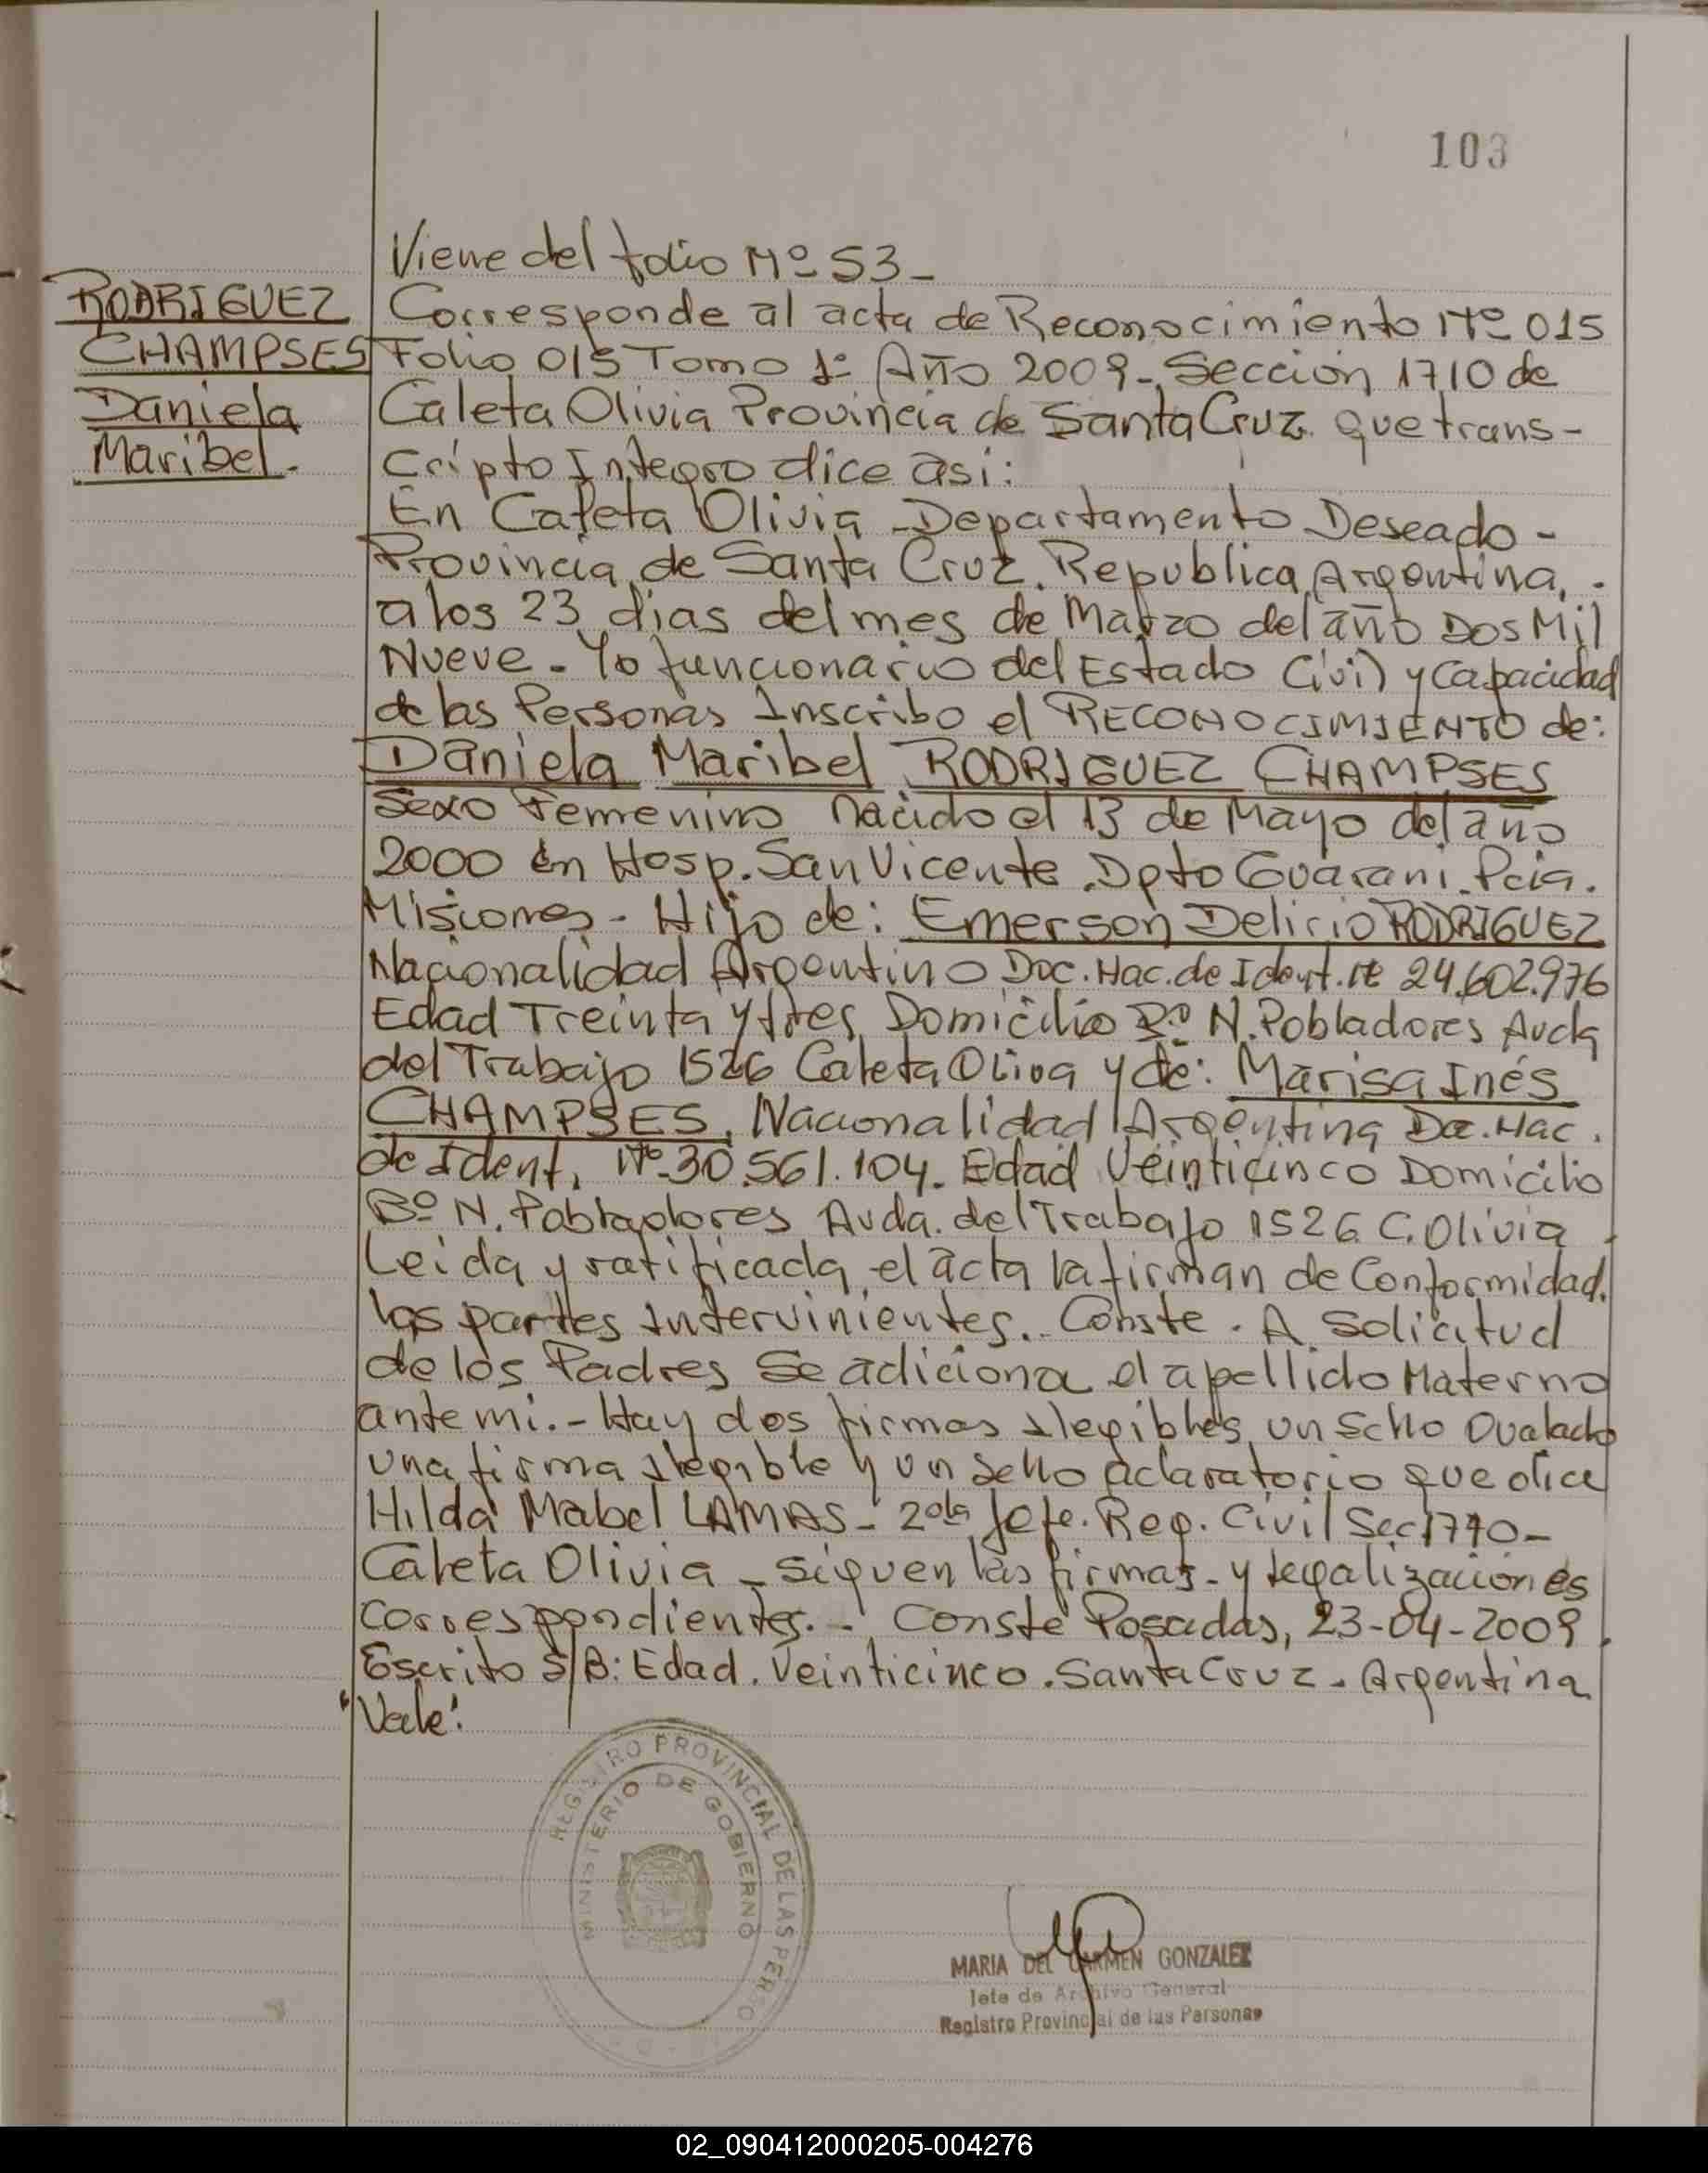 103
Viene del folio Nº 53-
RODRIGUEZ
CHAMPSES
Daniela
Maribel.
Corresponde al acta de Reconocimiento Nº 015
Folio 015 Tomo 1º Año 2009-, Sección 1710 de
Caleta Olivia Provincia de Santa Cruz que trans-
cripto Integro dice asi:
En Caleta Olivia - Departamento Deseado -
Provincia de Santa Cruz. Republica Argentina, .
a los 23 dias del mes de Marzo del año Dos Mil
Nueve - Yo funcionario del Estado Civil y Capacidad
de las Personas Inscribo el RECONOCIMIENTO de:
Daniela Maribel RODRIGUEZ CHAMPSES
Sexo Femenino nacido el 13 de Mayo del año
2000 en Hosp. San Vicente. Dpto Guarani. Pcia.
Misiones - Hijo de: Emerson Delirio RODRIGUEZ
Nacionalidad Argentino Doc. Nac. de Ident. Nº 24.602.976
Edad Treinta y tres Domicilio Bº N. Pobladores Avda
del Trabajo 1526 Caleta Oliva y de: Marisa Inés
CHAMPSES. Nacionalidad Argentina Doc. Nac.
de Ident. Nº 30.561.104. Edad Veinticinco Domicilio
Bº N. Pobladores Avda. del Trabajo 1526 C. Olivia
Leida y ratificada el acta la firman de Conformidad.
las partes Intervinientes.. Conste . A Solicitud
de los Padres Se adiciona el apellido Materno
ante mi. - Hay dos firmas Ilegibles, un Sello Ovalado
una firma Ilegible y un Sello aclaratorio que dice
Hilda Mabel LAMAS - 2da Jefe. Reg. Civil Sec 1710-
Caleta Olivia - siguen las firmas - y legalizaciones
correspondientes. - Conste Posadas, 23-04-2009.
Escrito S/B: Edad. Veinticinco. Santa Cruz. Argentina
"Vale".
REGISTRO PROVINCIAL DE LAS PERSO
MINISTERIO DE GOBIERNO
MARIA DEL CARMEN GONZALEZ
Jefe de Archivo General
Registro Provincial de las Personas
02_090412000205-004276